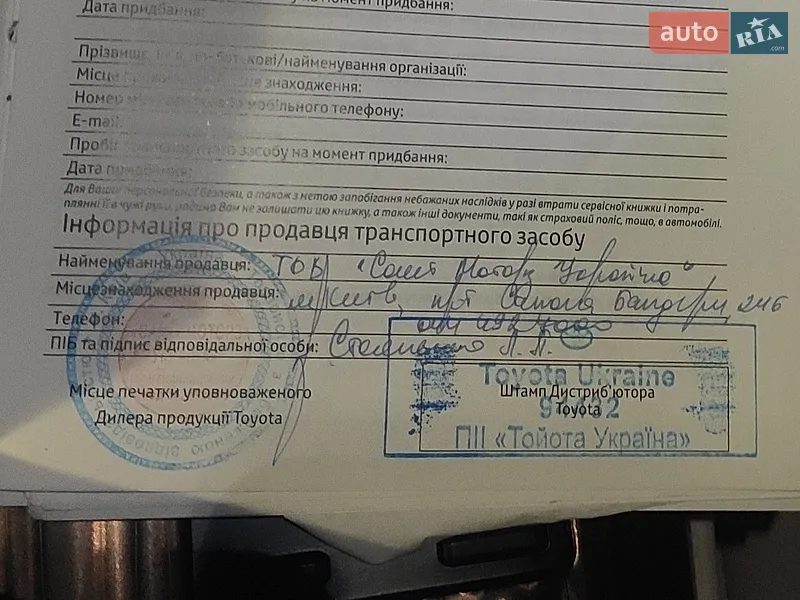 на момент придбання:
Дата придбання:
auto RIA .com
Прізвище, ім'я, по батькові/найменування організації:
Місце проживання/місце знаходження:
Номер мобільного телефону:
E-mail:
Пробіг транспортного засобу на момент придбання:
Дата придбання:
Для Вашої персональної безпеки, а також з метою запобігання небажаних наслідків у разі втрати сервісної книжки і потра-
плянні її в чужі руки, радимо Вам не залишати цю книжку, а також інші документи, такі як страховий поліс, тощо, в автомобілі.
Інформація про продавця транспортного засобу
Найменування продавця: ТОВ "Саміт Моторз Україна"
Місцезнаходження продавця: м. Київ, пр-т Степана Бандери, 24б
Телефон:
ПІБ та підпис відповідальної особи:
Місце печатки уповноваженого
Дилера продукції Toyota
Toyota Ukraine
Штамп Дистриб'ютора
Toyota
ПІІ «Тойота Україна»